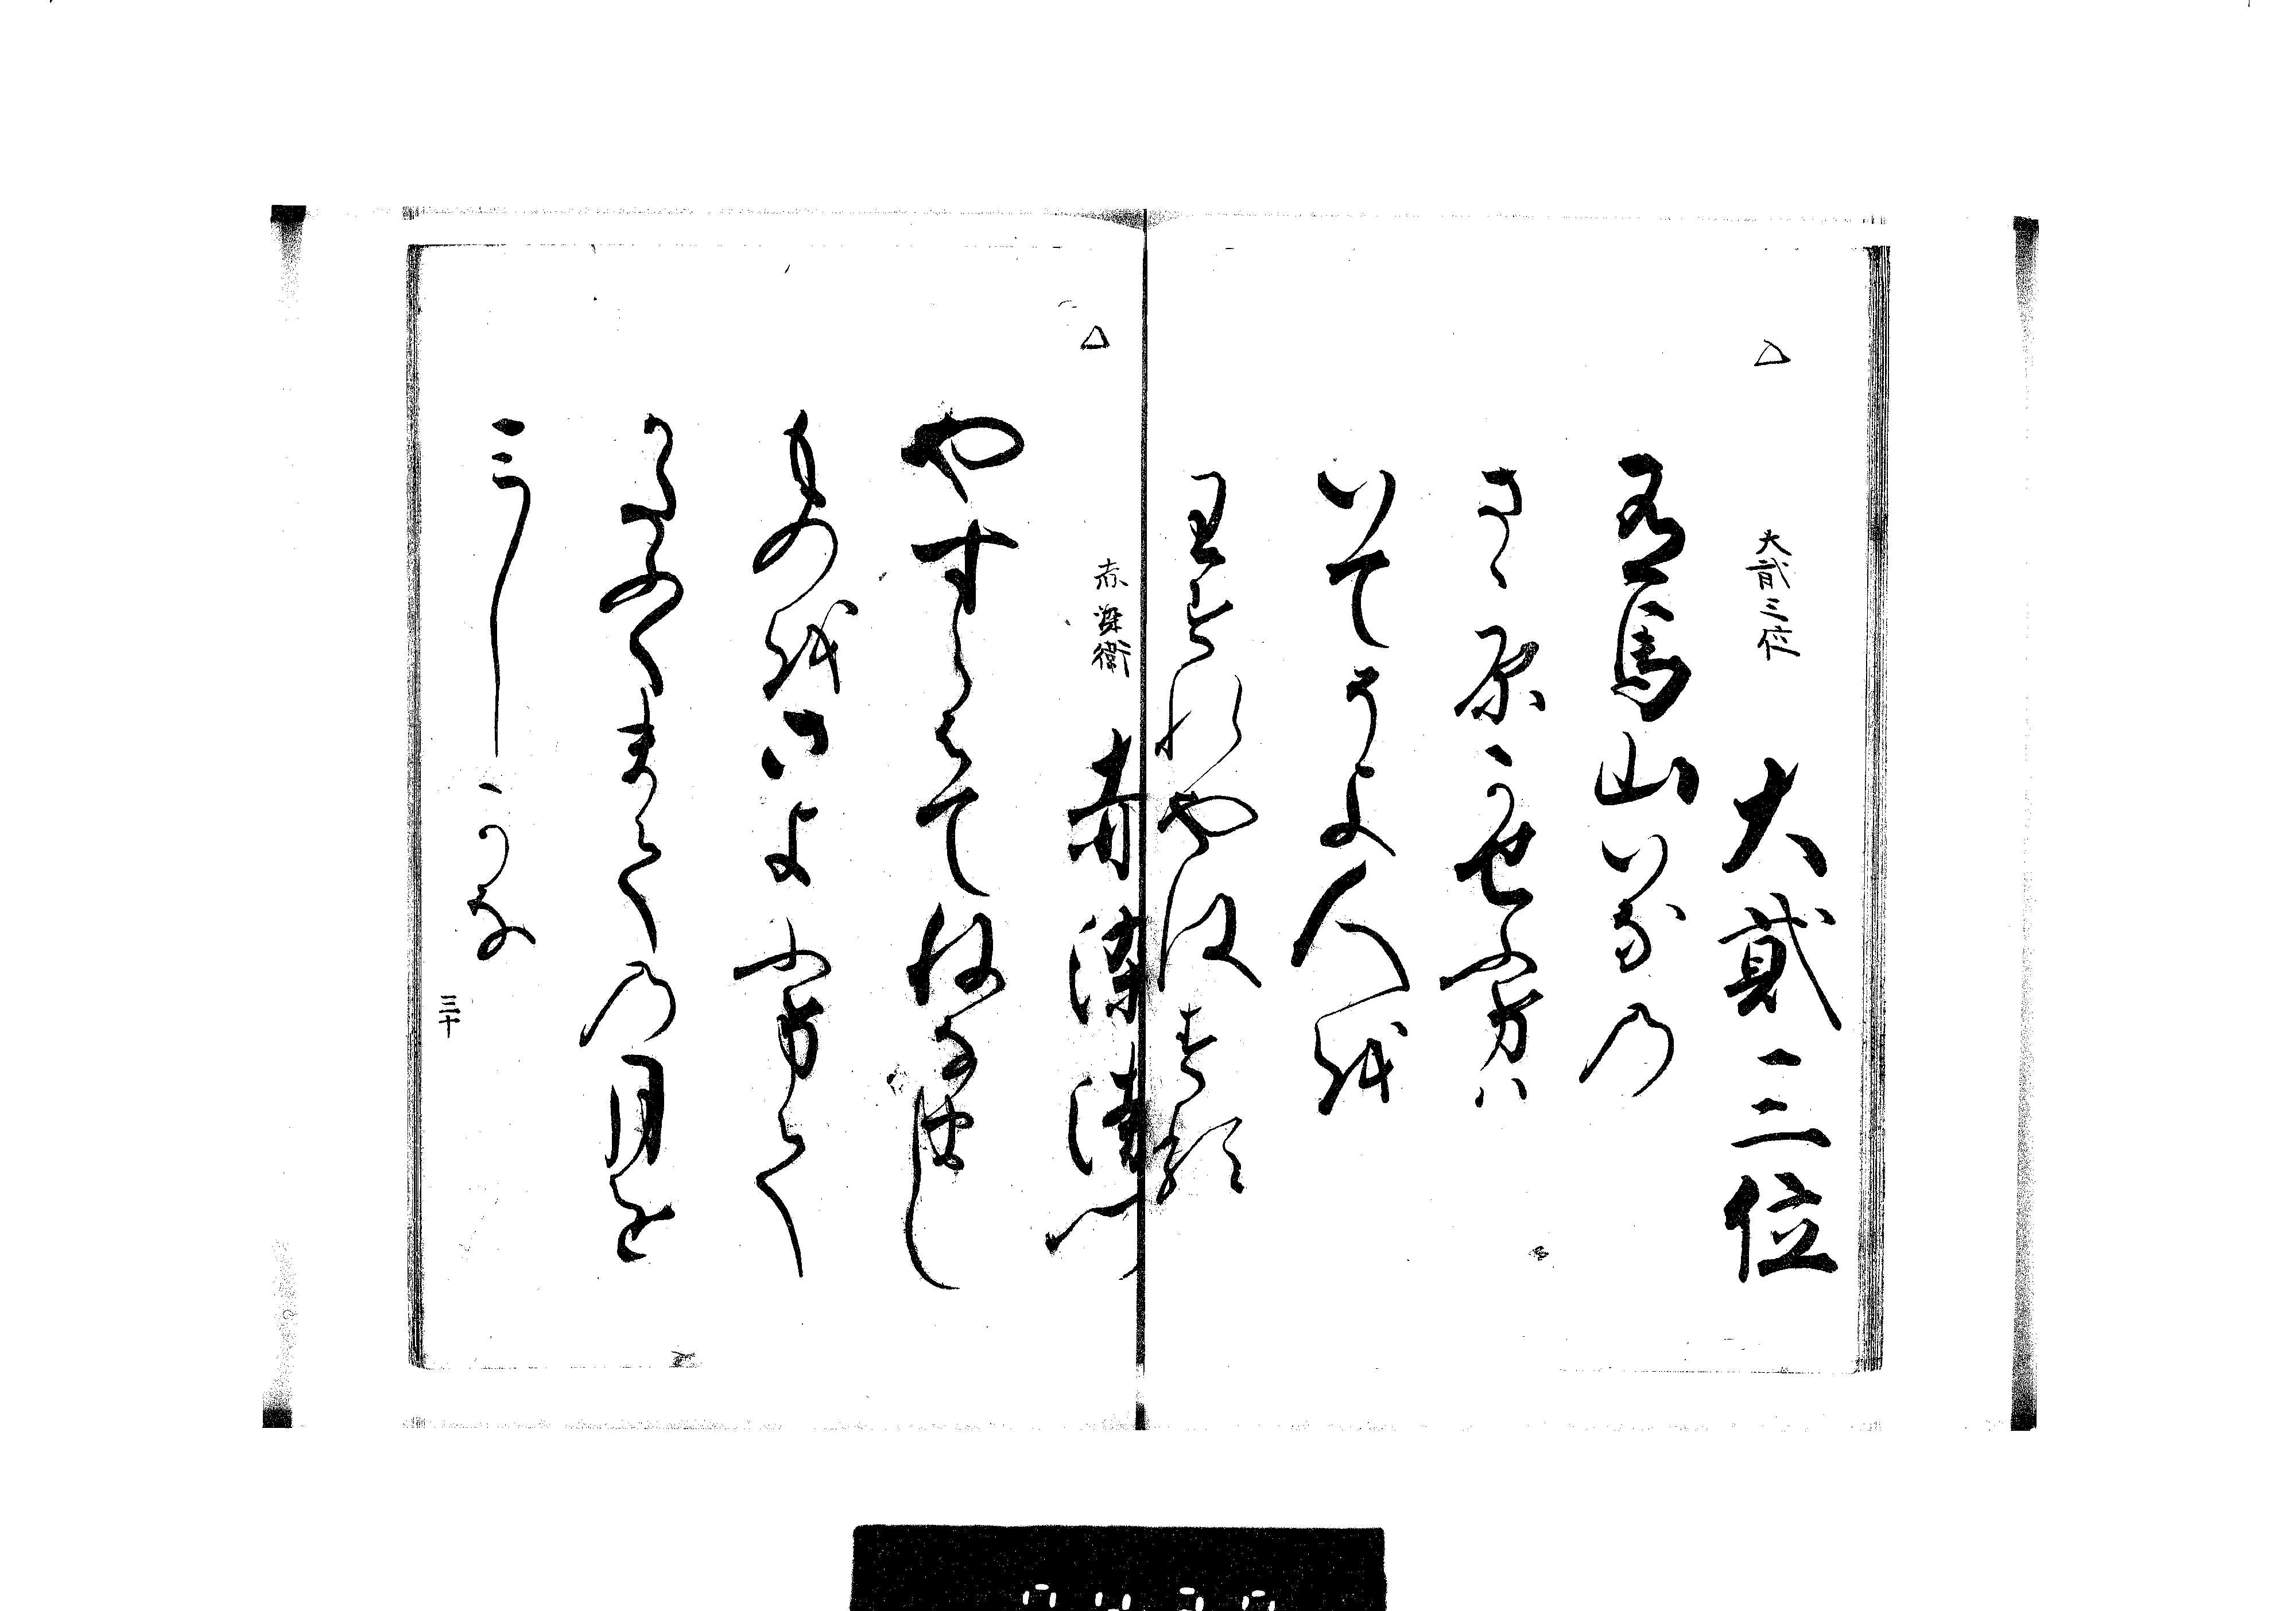 大貳三位
大貳三位
有馬山いなの
さゝ原かせふけは
いてそよ人を
わすれやはする
赤染衛
赤染衛門
やすらはてねなまし
ものをさよふけて
かたふくまての月を
みしかな
三十